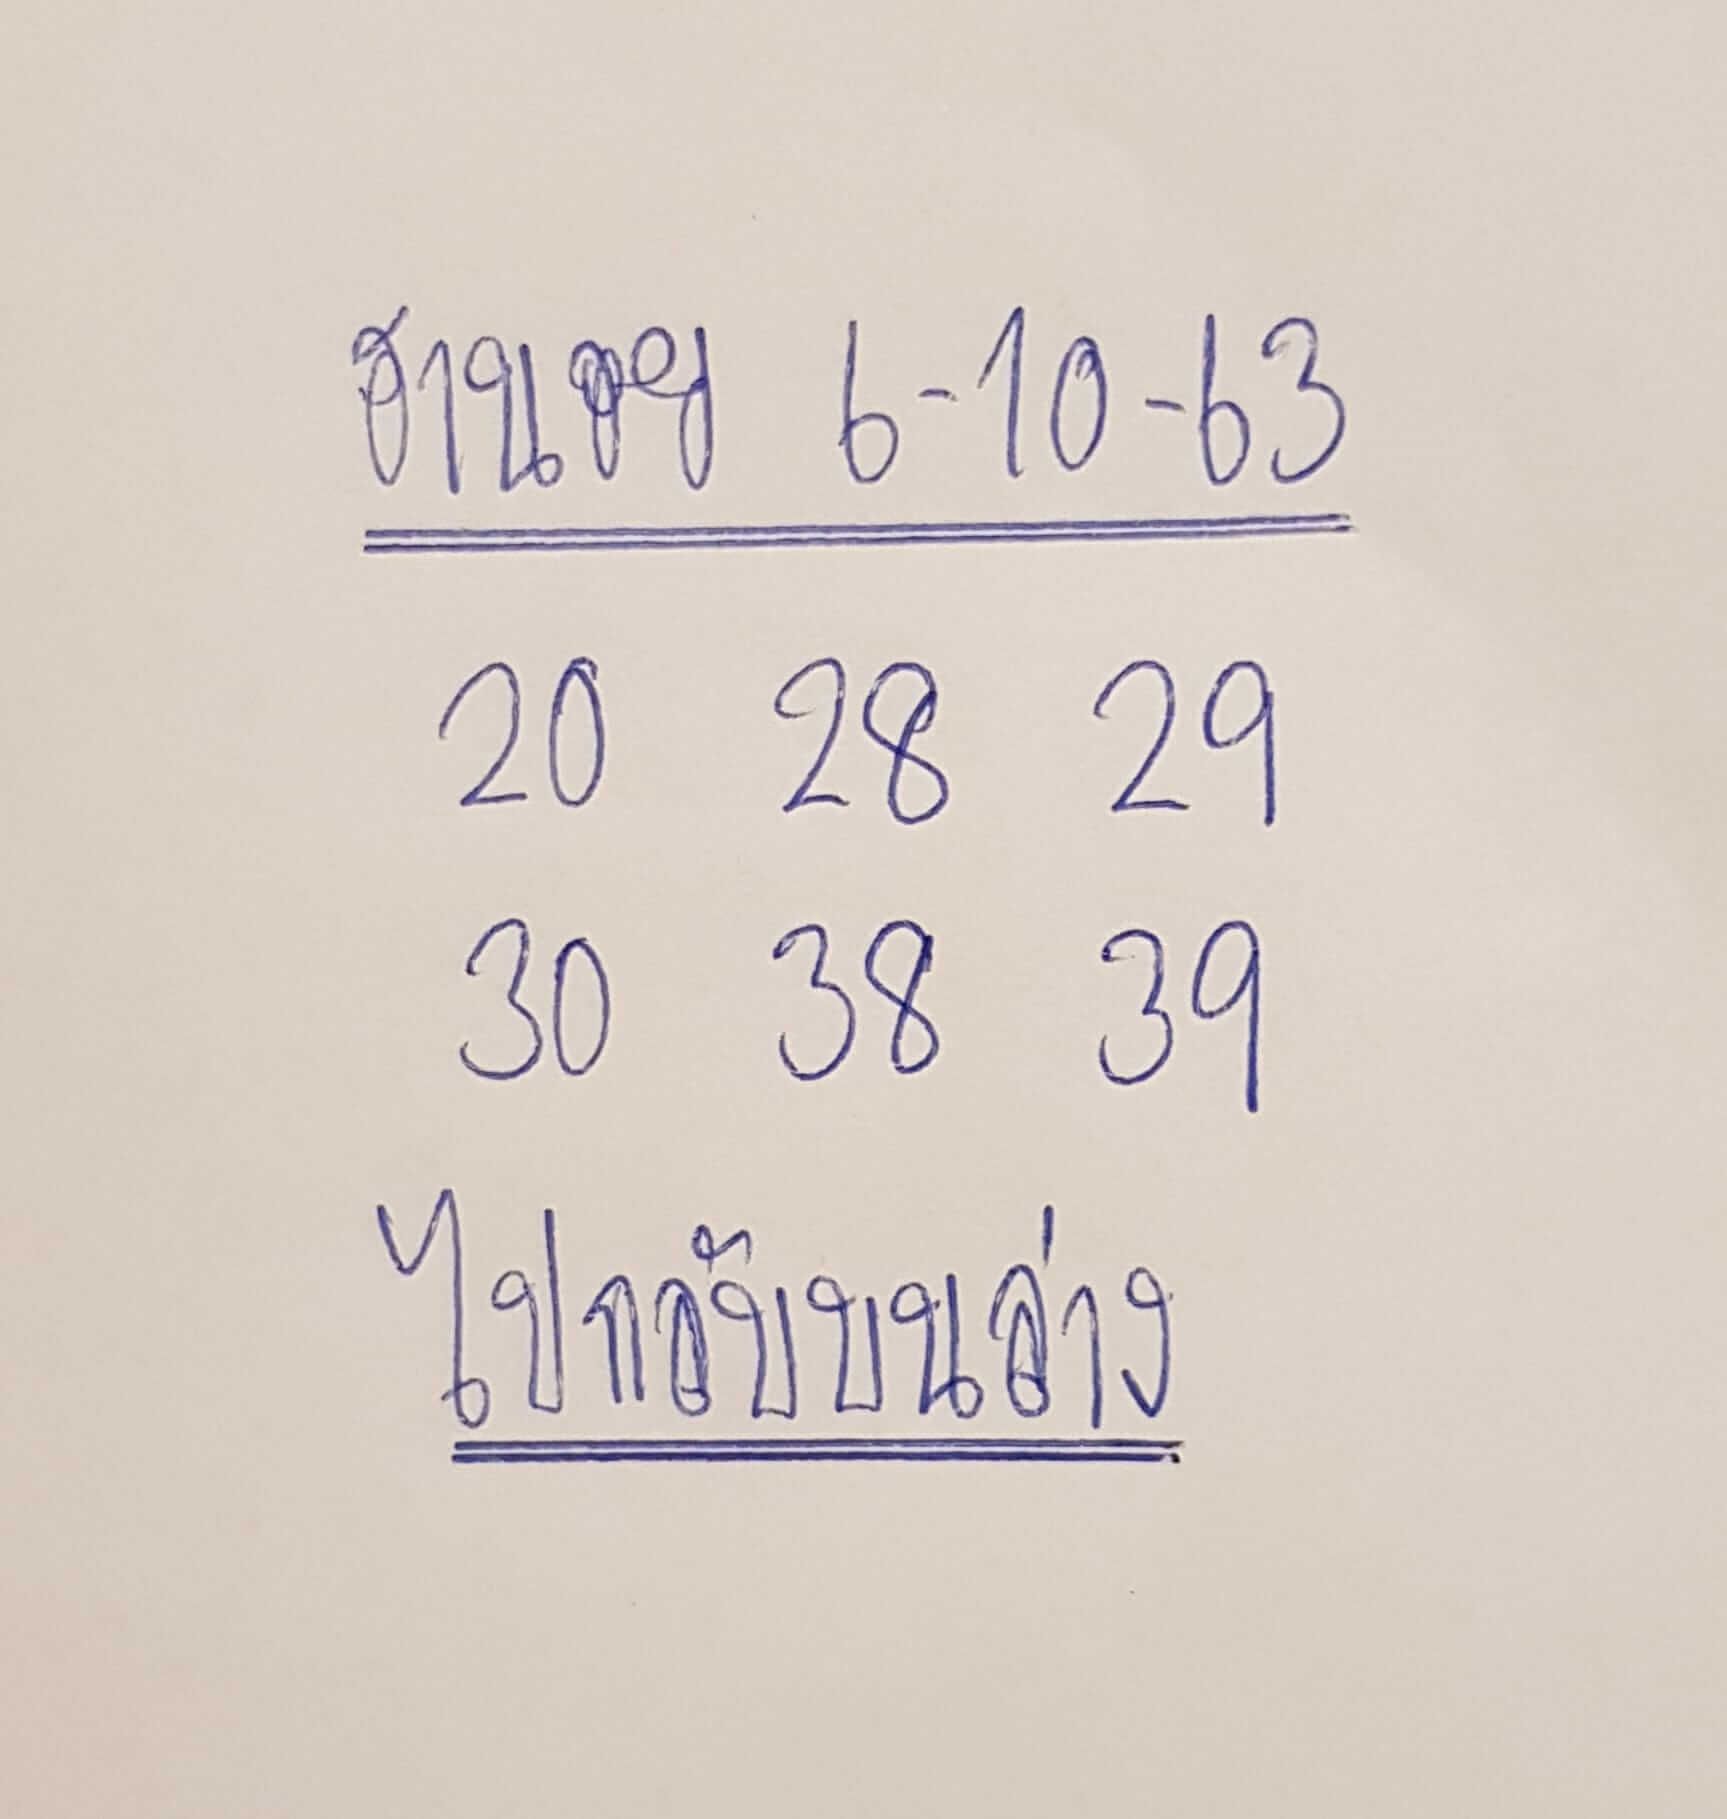 ฮานอย 6-10-63
20 28 29
30 38 39
ไปกลับบนล่าง